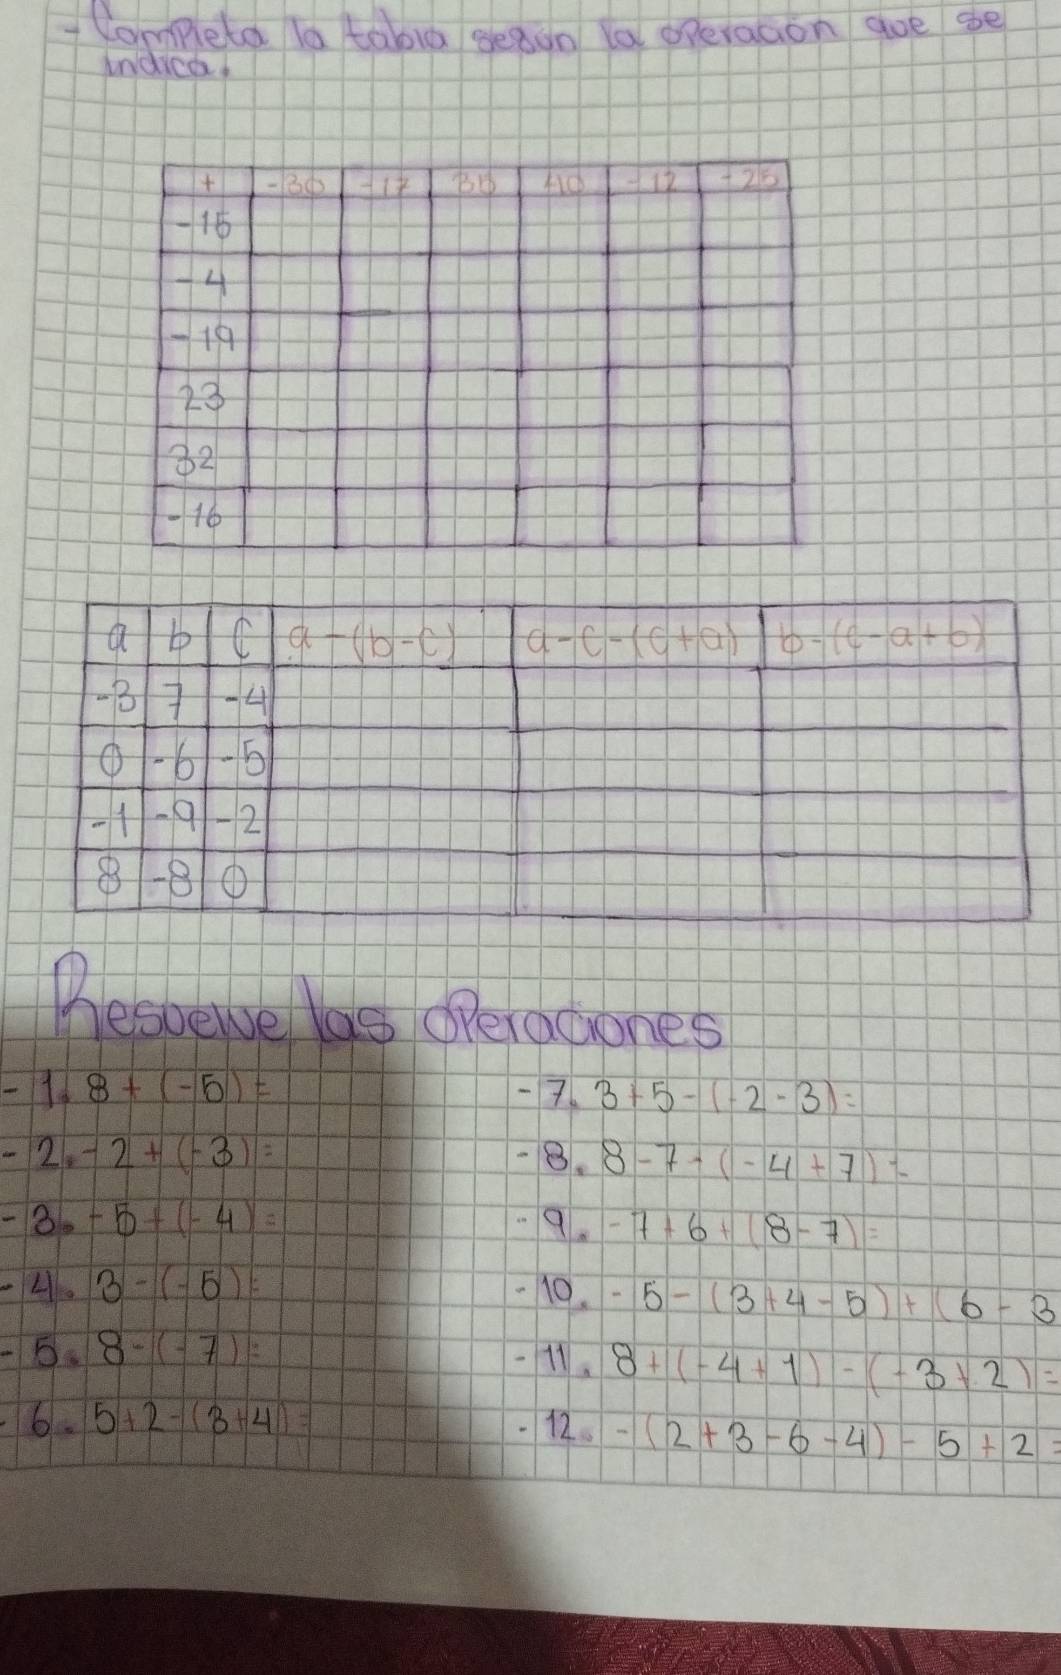 - Completa la tabla según la operación que se
indica.
+ -30 -17 35 40 -12 -25
-15
-4
-19
23
32
-16
a b c a-(b-c) a-c-(c+a) b-(c-a+b)
-3 7 -4
0 -6 -5
-1 -9 -2
8 -8 0
Resuelve las operaciones
- 1. 8+(-5)=
- 2. -2+(-3)=
- 3. -5+(-4)=
- 4. 3-(-5)=
- 5. 8-(-7)=
- 6. 5+2-(3+4)=
- 7. 3+5-(-2-3)=
- 8. 8-7-(-4+7)=
- 9. -7+6+(8-7)=
- 10. -5-(3+4-5)+(6-3
- 11. 8+(-4+1)-(-3+2)=
- 12. -(2+3-6-4)-5+2=